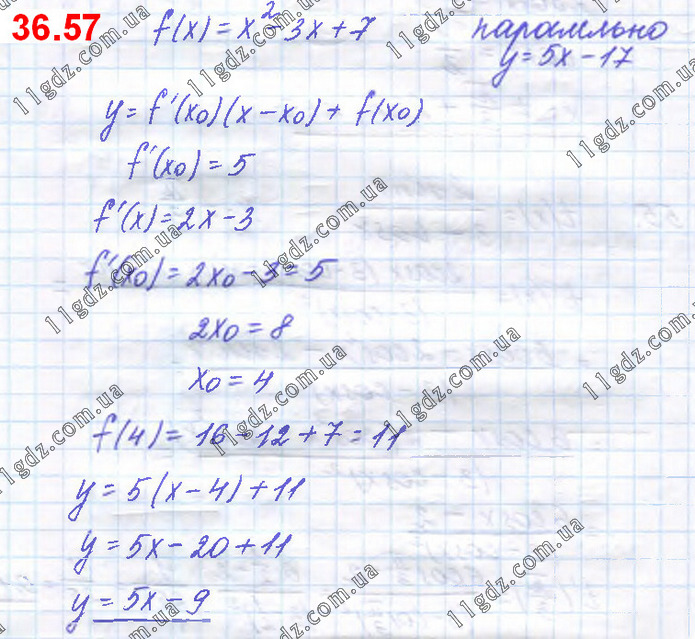 36.57 f(x) = x² - 3x + 7 паралельно
y = 5x - 17
y = f'(x₀)(x - x₀) + f(x₀)
f'(x₀) = 5
f'(x) = 2x - 3
f'(x₀) = 2x₀ - 3 = 5
2x₀ = 8
x₀ = 4
f(4) = 16 - 12 + 7 = 11
y = 5(x - 4) + 11
y = 5x - 20 + 11
y = 5x - 9
11gdz.com.ua
11gdz.com.ua
11gdz.com.ua
11gdz.com.ua
11gdz.com.ua
11gdz.com.ua
11gdz.com.ua
11gdz.com.ua
11gdz.com.ua
11gdz.com.ua
11gdz.com.ua
11gdz.com.ua